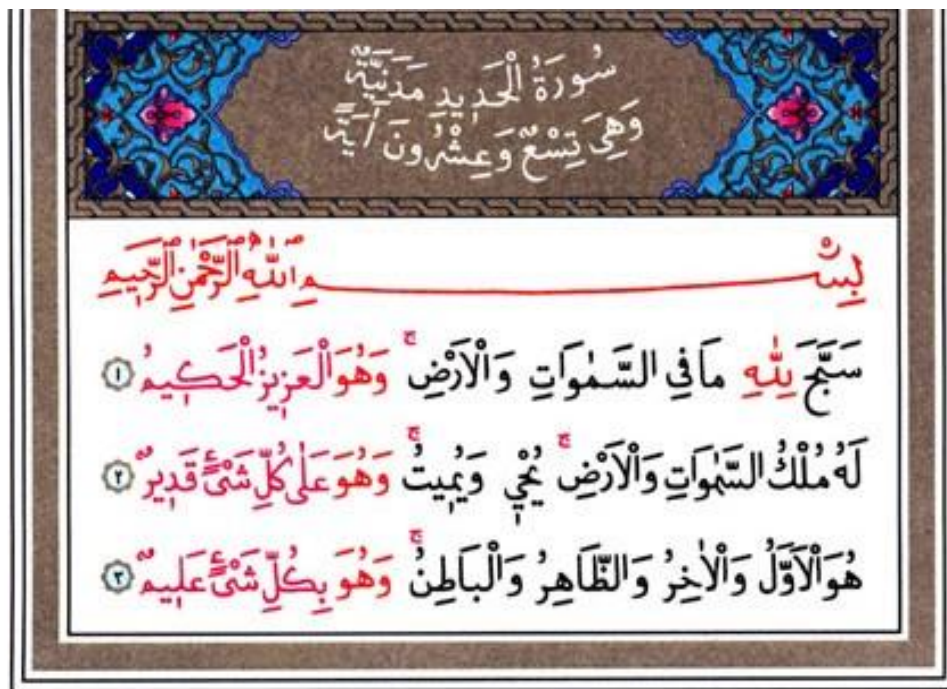 سُورَةُ الْحَدِيدِ مَدَنِيَّةٌ
وَهِيَ تِسْعٌ وَعِشْرُونَ اٰيَةً
بِسْمِ اللّٰهِ الرَّحْمٰنِ الرَّحِيمِ
سَبَّحَ لِلّٰهِ مَا فِي السَّمٰوَاتِ وَالْاَرْضِۚ وَهُوَ الْعَزِيزُ الْحَكِيمُ ﴿١﴾
لَهُ مُلْكُ السَّمٰوَاتِ وَالْاَرْضِۚ يُحْيِي وَيُمِيتُۚ وَهُوَ عَلٰى كُلِّ شَيْءٍ قَدِيرٌ ﴿٢﴾
هُوَ الْاَوَّلُ وَالْاٰخِرُ وَالظَّاهِرُ وَالْبَاطِنُۚ وَهُوَ بِكُلِّ شَيْءٍ عَلِيمٌ ﴿٣﴾